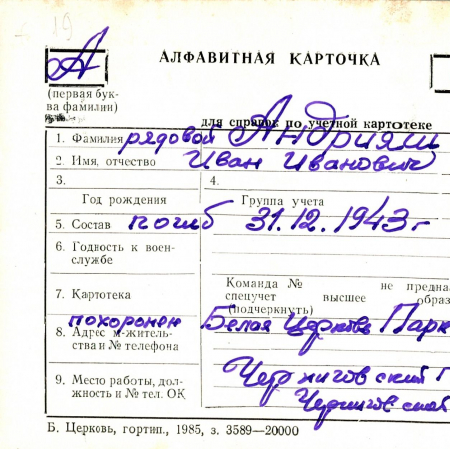 А
АЛФАВИТНАЯ КАРТОЧКА
(первая бук-
ва фамилии)
для справок по учетной картотеке
1. Фамилия рядовой Андрияш
2. Имя, отчество Иван Иванович
3.
4.
Год рождения
Группа учета
5. Состав погиб 31.12.1943 г
6. Годность к воен-
службе
Команда № не предна
7. Картотека
спецучет высшее образ
(подчеркнуть)
похоронен Белая Церковь Парк
8. Адрес м-житель-
ства и № телефона
Черниговский
9. Место работы, дол-
жность и № тел. ОК
Б. Церковь, гортип., 1985, з. 3589—20000